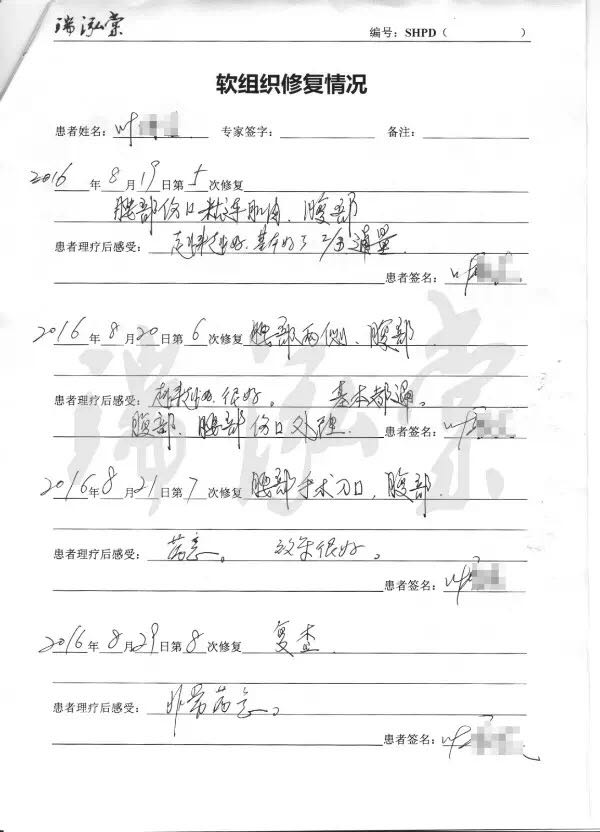 瑞泓棠
编号：SHPD（ ）
软组织修复情况
患者姓名：叶 专家签字： 备注：
2016年8月19日第5次修复
腰部伤口粘连肌肉、腹部
患者理疗后感受：越来越好.基本好了 通量
患者签名：叶
2016年8月20日第6次修复 腰部两侧、腹部
患者理疗后感受：越来越好.很好。 基本都通。
腹部、腰部伤口处理. 患者签名：叶
2016年8月21日第7次修复 腰部手术刀口，腹部.
患者理疗后感受：满意。 效果很好。
患者签名：叶
2016年8月29日第8次修复 复查
患者理疗后感受：非常满意。
患者签名：叶
瑞泓棠